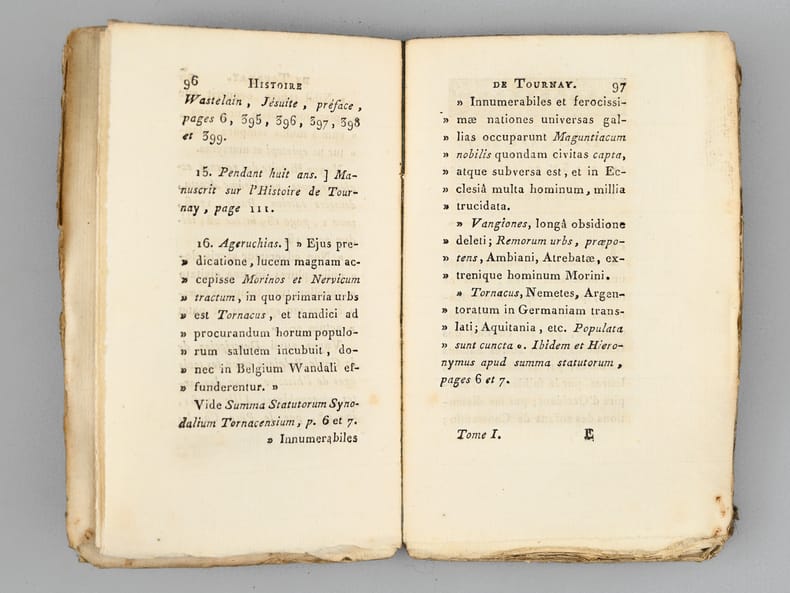 96 HISTOIRE
Wastelain, Jésuite, préface,
pages 6, 395, 396, 397, 398
et 399.
15. Pendant huit ans. ] Ma-
nuscrit sur l'Histoire de Tour-
nay, page 111.
16. Ageruchias. ] » Ejus pre-
» dicatione, lucem magnam ac-
» cepisse Morinos et Nervicum
» tractum, in quo primaria urbs
» est Tornacus, et tamdici ad
» procurandum horum populo-
» rum salutem incubuit, do-
» nec in Belgium Wandali ef-
» funderentur. »
Vide Summa Statutorum Syno-
dalium Tornacensium, p. 6 et 7.
» Innumerabiles
DE TOURNAY. 97
» Innumerabiles et ferocissi-
» mæ nationes universas gal-
» lias occuparunt Maguntiacum
» nobilis quondam civitas capta,
» atque subversa est, et in Ec-
» clesiâ multa hominum, millia
» trucidata.
» Vangiones, longâ obsidione
» deleti; Remorum urbs, præpo-
» tens, Ambiani, Atrebatæ, ex-
» trenique hominum Morini.
» Tornacus, Nemetes, Argen-
» toratum in Germaniam trans-
» lati; Aquitania, etc. Populata
» sunt cuncta ». Ibidem et Hiero-
nymus apud summa statutorum,
pages 6 et 7.
Tome I. E